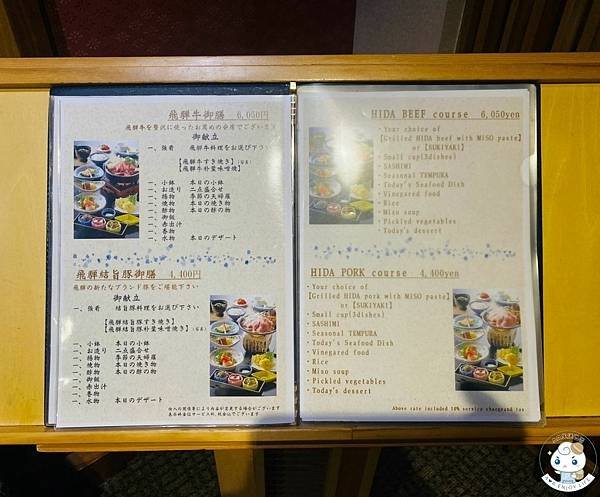 飛騨牛御膳 6,050円
飛騨牛を贅沢に使ったお薦めの会席でございます
御献立
一、強肴 飛騨牛料理をお選び下さい
【飛騨牛すき焼き】
【飛騨牛朴葉味噌焼】
一、小鉢 本日の小鉢
一、お造り 二点盛合せ
一、揚物 季節の天婦羅
一、焼物 本日の焼き物
一、酢物 本日の酢の物
一、御飯
一、赤出汁
一、香物
一、水物 本日のデザート
飛騨結旨豚御膳 4,400円
飛騨の新たなブランド豚をご堪能下さい
御献立
一、強肴 結旨豚料理をお選び下さい
【飛騨結旨豚すき焼き】
【飛騨結旨豚朴葉味噌焼き】
一、小鉢 本日の小鉢
一、お造り 二点盛合せ
一、揚物 季節の天婦羅
一、焼物 本日の焼き物
一、酢物 本日の酢の物
一、御飯
一、赤出汁
一、香物
一、水物 本日のデザート
仕入の関係等により内容が変更する場合がございます
表示料金はサービス料、税込みでございます
HIDA BEEF course 6,050yen
・Your choice of
【Grilled HIDA beef with MISO paste】
or【SUKIYAKI】
・Small cup(3dishes)
・SASHIMI
・Seasonal TEMPURA
・Today's Seafood Dish
・Vinegared food
・Rice
・Miso soup
・Pickled vegetables
・Today's dessert
HIDA PORK course 4,400yen
・Your choice of
【Grilled HIDA pork with MISO paste】
or【SUKIYAKI】
・Small cup(3dishes)
・SASHIMI
・Seasonal TEMPURA
・Today's Seafood Dish
・Vinegared food
・Rice
・Miso soup
・Pickled vegetables
・Today's dessert
Above rate included 10% service chargeand tax
ENJOY LIFE